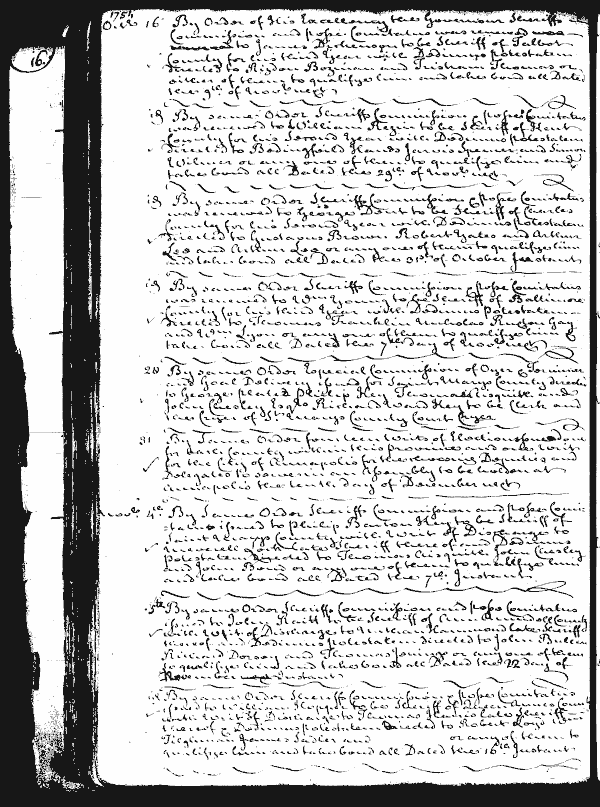 1754
16.
Octr 16 By Order of His Excellency the Governour Sheriffs
Commission and posse Comitatus was renewed
to James Dickenson to be Sheriff of Talbot
County for his third Year with Dedimus potestatem
directed to Risdon Bozman and Tristram Thomas or
either of them to qualify him and take bond all Dated
the 9th of Novr next
By same Order Sheriffs Commission & posse Comitatus
was renewed to William to be Sheriff of Kent
County for his Second Year with Dedimus potestatem
directed to Bedingfield Hands Jarvis Spencer and Simon
Wilmer or any one of them to qualify him and
take bond all Dated the 29th of Novr next
By same Order Sheriffs Commission & posse Comitatus
was renewed to George Dent to be Sheriff of Charles
County for his Second Year with Dedimus potestatem
directed to Gustavus Brown Robert Yates and Arthur
Lee and Arthur Lee or any one of them to qualify him
and take bond all Dated the 31st of October Instant
By same Order Sheriffs Commission & posse Comitatus
was renewed to Wm Young to be Sheriff of Baltimore
County for his third Year with Dedimus potestatem
directed to Thomas Franklin Nicholas Ruxton Gay
and Wm Lyon or any one of them to qualify him &
take bond all Dated the 7th day of Novr next
By same Order Especial Commission of Oyer & Terminer
and Goal Delivery issued for Saint Marys County directed
to George Plater Philip Key and
John Chesley Esqrs Richard Ward Key to be Clerk and
the Cryer of St Marys County Court Cryer
31 By Same Order fourteen Writs of Elections
for each County within this Province and one Writ
for the City of Annapolis for the choosing Deputies and
Delegates to serve in Assembly to be holden at
Annapolis the tenth day of December next
Novr 4th By Same Order Sheriffs Commission and posse Comi-
tatus issued to Philip Barton Key to be Sheriff of
Saint Marys County with Writ of Discharge to
late Sheriff thereof and Dedimus
Potestatem directed to Thomas John Chesley
and John Bond or any one of them to qualify him
and take bond all Dated the 7th Instant
5th By same Order Sheriffs Commission and posse Comitatus
issued to John Raitt to be Sheriff of Ann Arundell County
with Writ of Discharge to Nathan Hammond late Sheriff
thereof and Dedimus potestatem directed to John Bullen
Richard Dorsey and Thomas Jenings or any one of them
to qualify him and take bond all Dated the 22 day of
November Instant
By Same Order Sheriffs Commission & posse Comitatus
issued to William Hopper to be Sheriff of Queen Annes County
with Writ of Discharge to Thomas late Sheriff
thereof & Dedimus potestatem directed to Robert Lloyd
Tilghman James Sadler and or any of them to
qualify him and take bond all Dated the 16th Instant